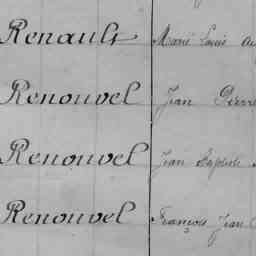 Renault Marie Louis Au
Renouvel Jean Pierre
Renouvel Jean Baptiste
Renouvel François Jean